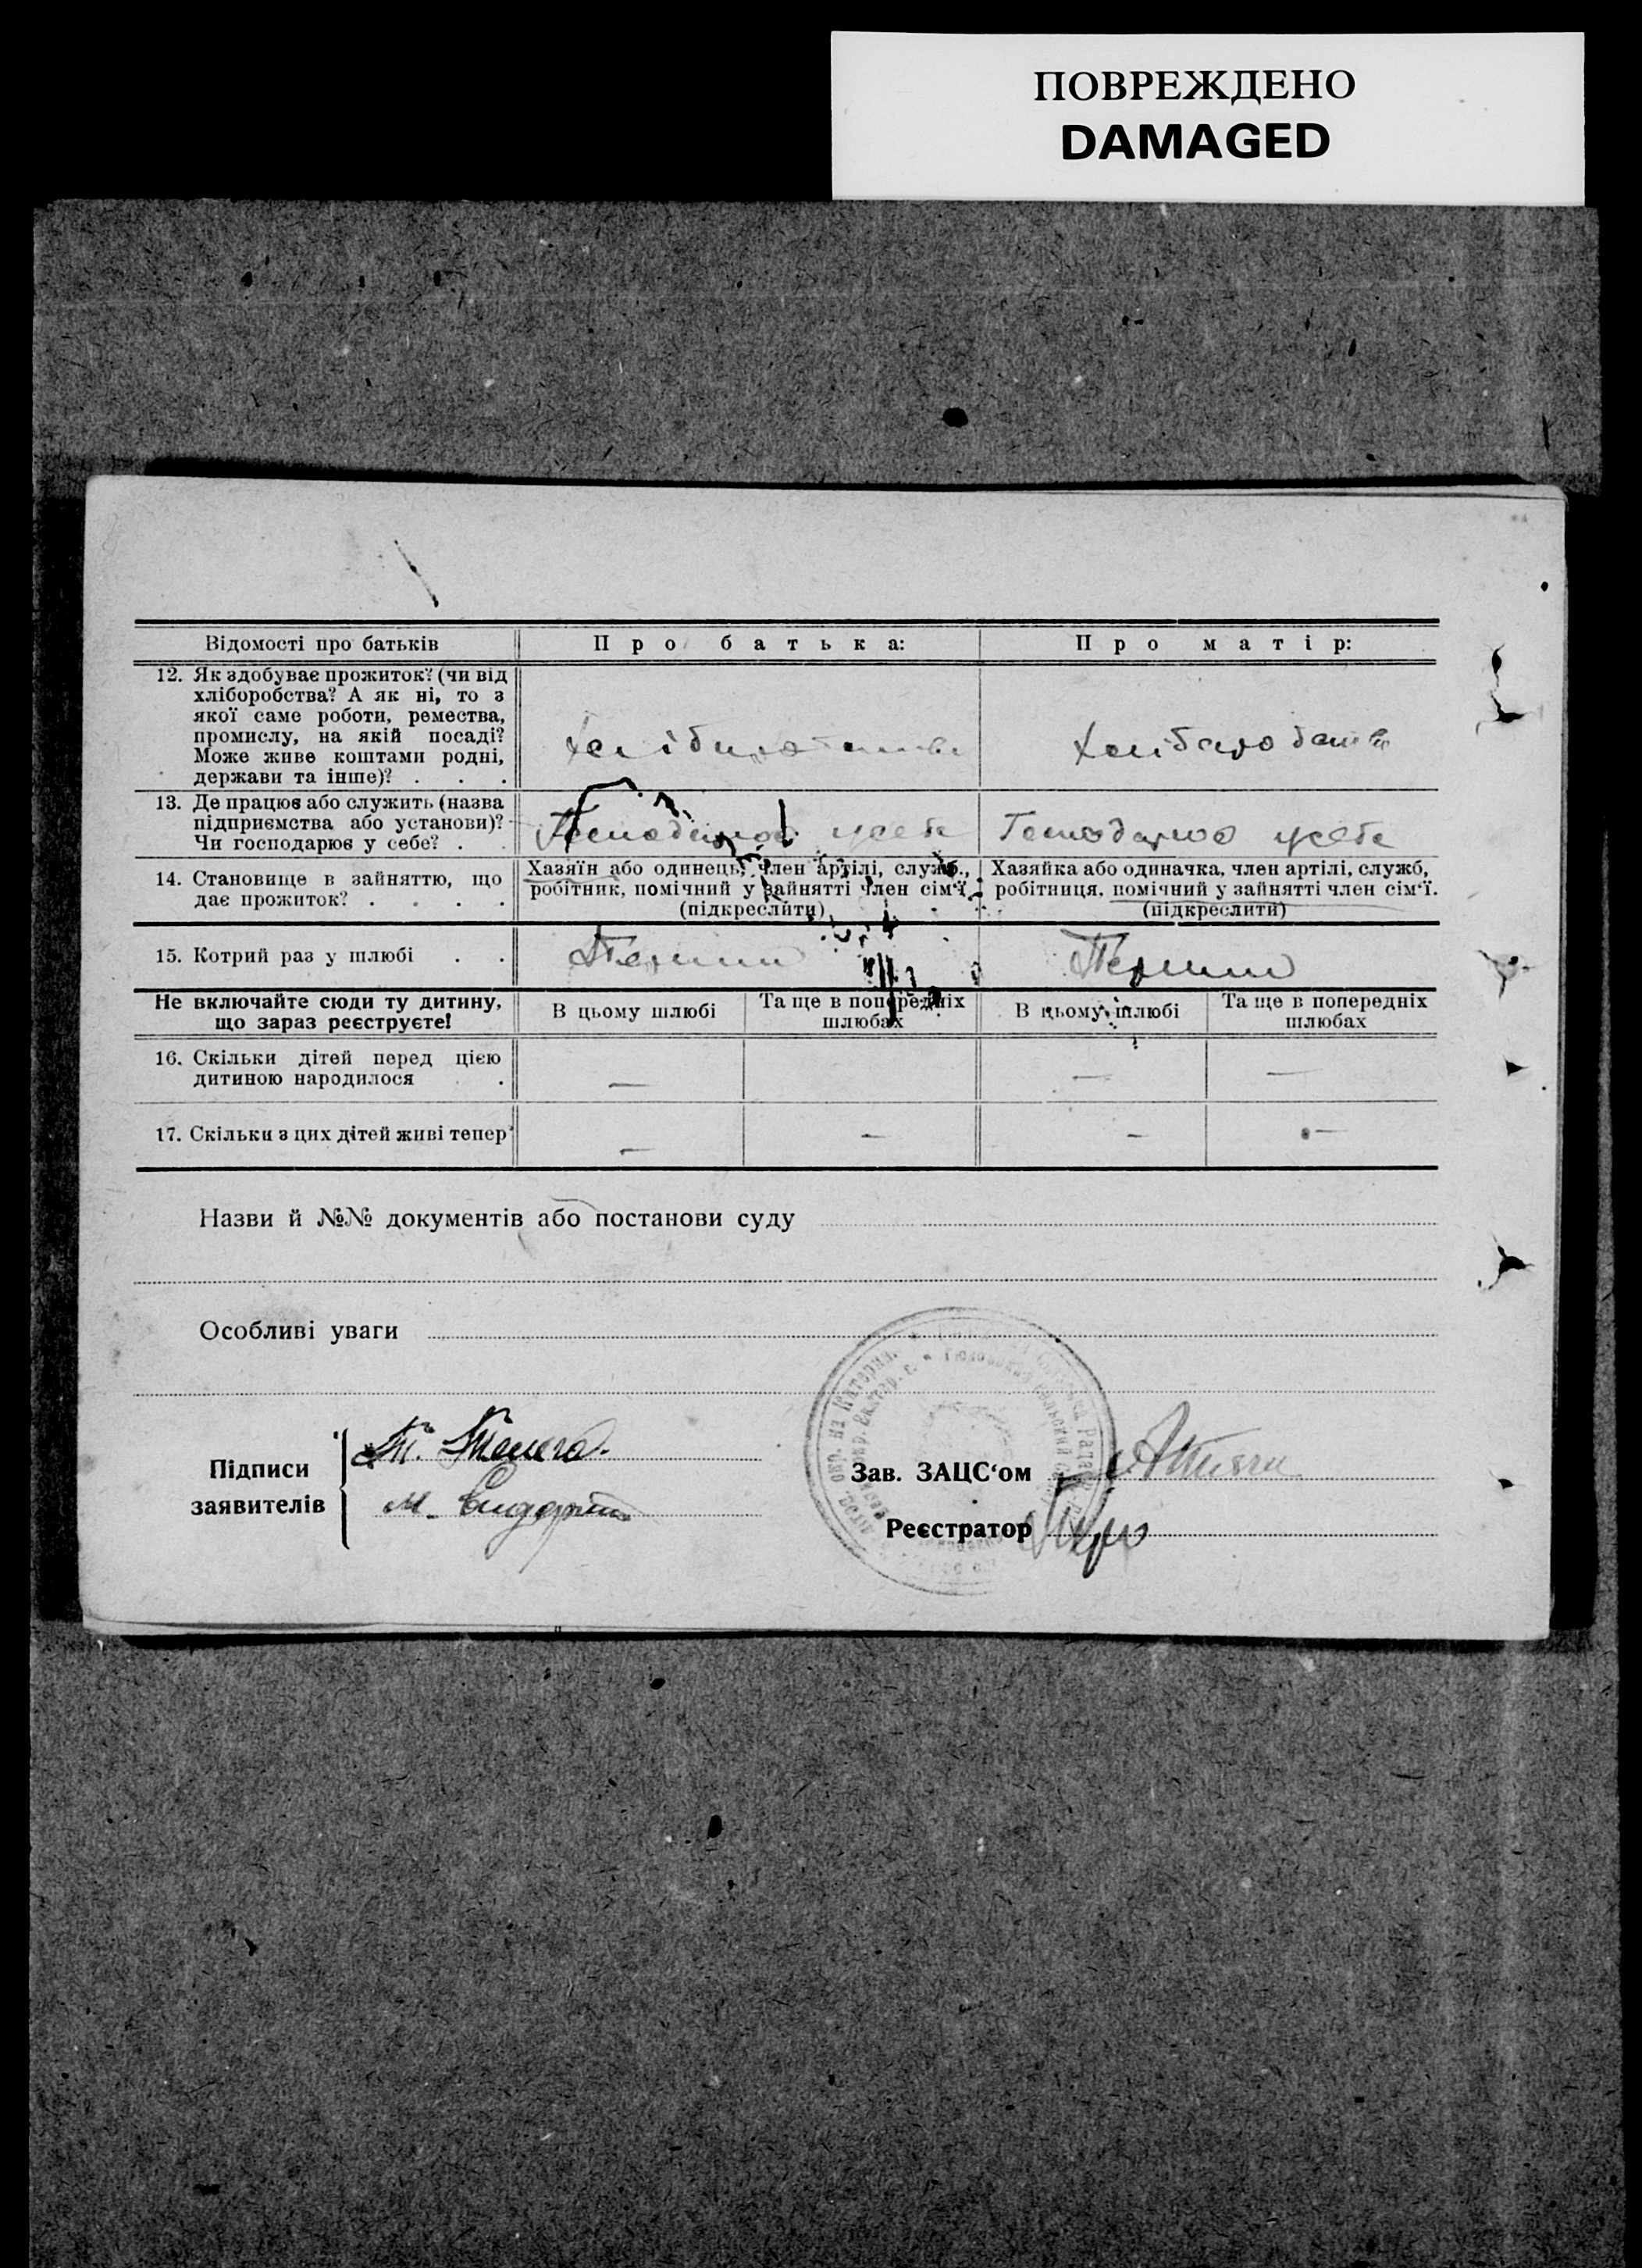 ПОВРЕЖДЕНО
DAMAGED
Відомості про батьків
Про батька:
Про матір:
12. Як здобуває прожиток? (чи від
хліборобства? А як ні, то з
якої саме роботи, ремества,
промислу, на якій посаді?
Може живе коштами родні,
держави та інше)? . . .
13. Де працює або служить (назва
підприємства або установи)?
Чи господарює у себе? . .
Господарює у себе
14. Становище в зайняттю, що
дає прожиток? . . . .
Хазяїн або одинець, член артілі, служб.,
робітник, помічний у зайнятті член сім'ї.
(підкреслити)
Хазяйка або одиначка, член артілі, служб,
робітниця, помічний у зайнятті член сім'ї.
(підкреслити)
15. Котрий раз у шлюбі . .
Перший
Перший
Не включайте сюди ту дитину,
що зараз реєструєте!
В цьому шлюбі
Та ще в попередніх
шлюбах
В цьому шлюбі
Та ще в попередніх
шлюбах
16. Скільки дітей перед цією
дитиною народилося .
— — —
17. Скільки з цих дітей живі тепер
— — — —
Назви й №№ документів або постанови суду
Особливі уваги
Підписи
заявителів
Зав. ЗАЦС'ом
Реєстратор